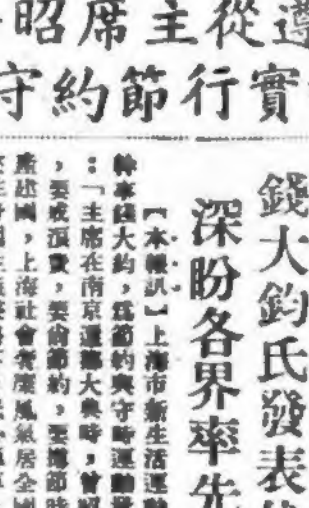 遵從主席昭
實行節約守
錢大鈞氏發表
深盼各界率先
【本報訊】上海市新生活運動
錢大鈞，為節約與守時運動
：「主席在南京還都大典時，曾昭
，要戒浪費，要尚節約，要惜時
建國，上海社會奢靡風氣居全國